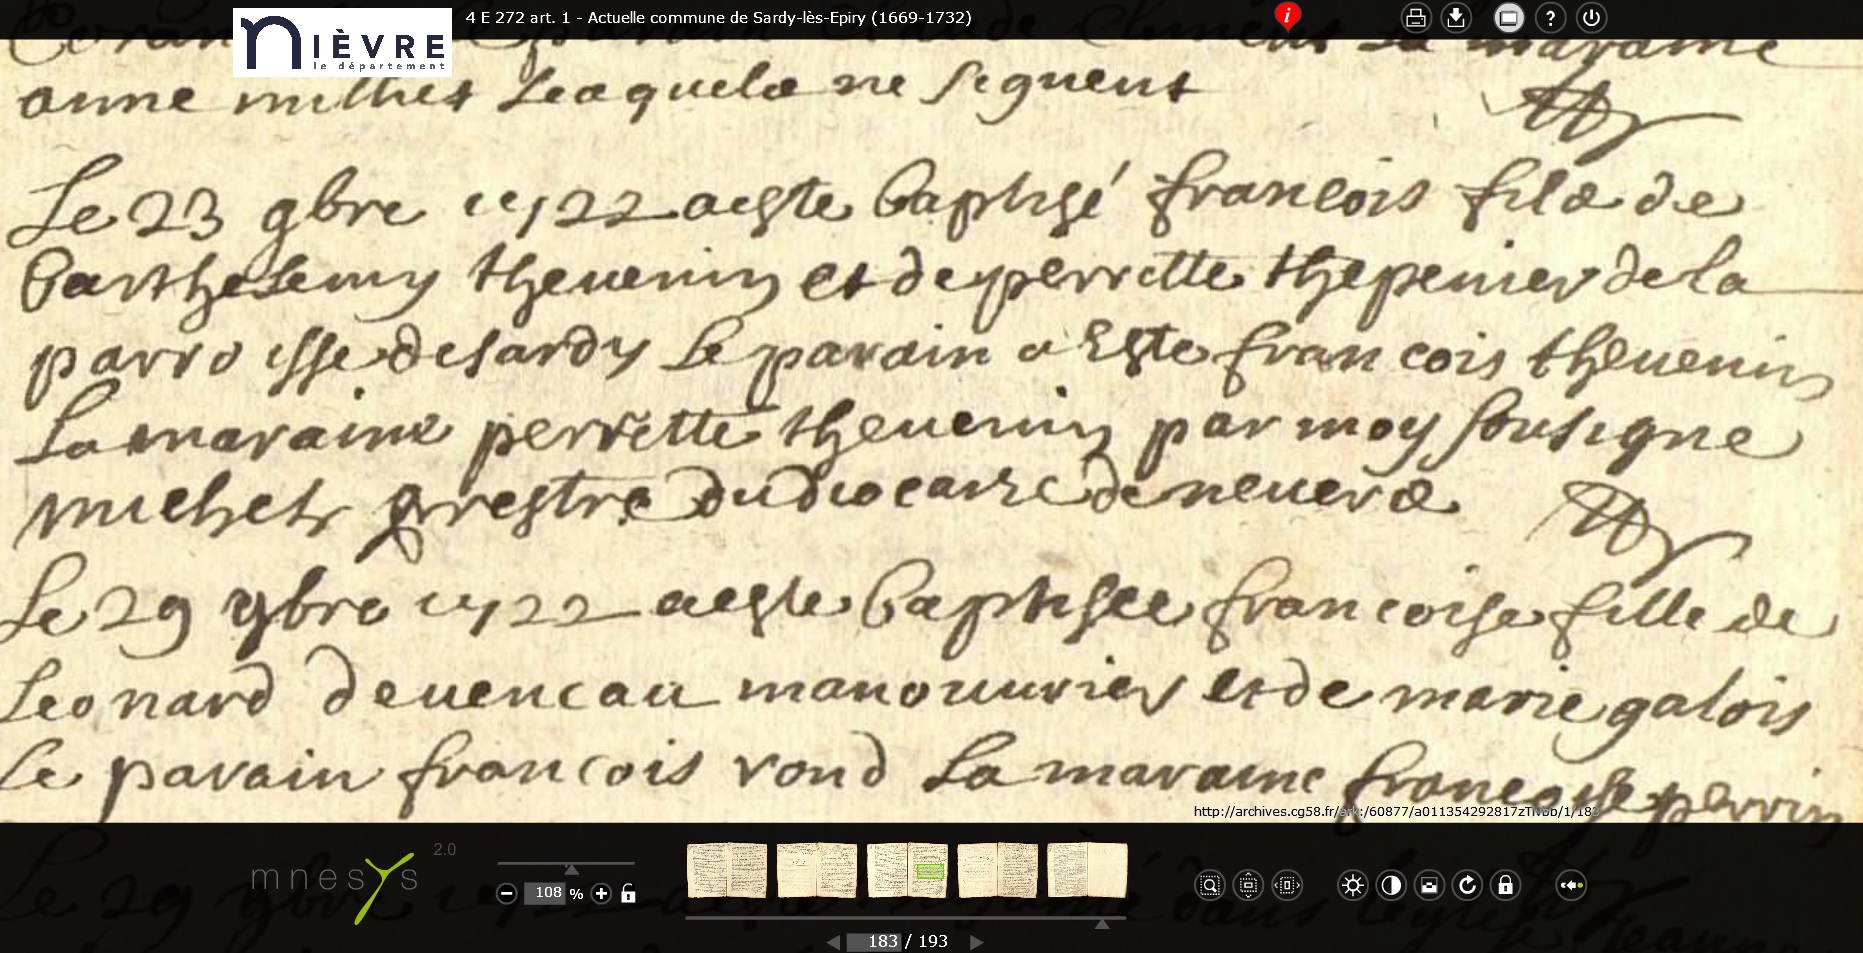 4 E 272 art. 1 - Actuelle commune de Sardy-lès-Epiry (1669-1732)
NIÈVRE
le département
parain Clement La maraine
anne millet Leaquelœ ne signent
Le 23 9bre 1722 aeste baptisé francois filœ de
barthelemy thevenin et de perrette thepenier de la
parroisse de sardy Le parain a Este francois thevenin
La maraine perrette thevenin par moy sousigne
michet prestre du diocaise de neuerœ
Le 29 9bre 1722 aeste baptisee francoise fille de
Leonard deuencau manouurier et de marie galois
Le parain francois rond La maraine francoise perrin
http://archives.cg58.fr/ark:/60877/a011354292817zTivbb/1/183
mnesys 2.0
108 %
183 / 193